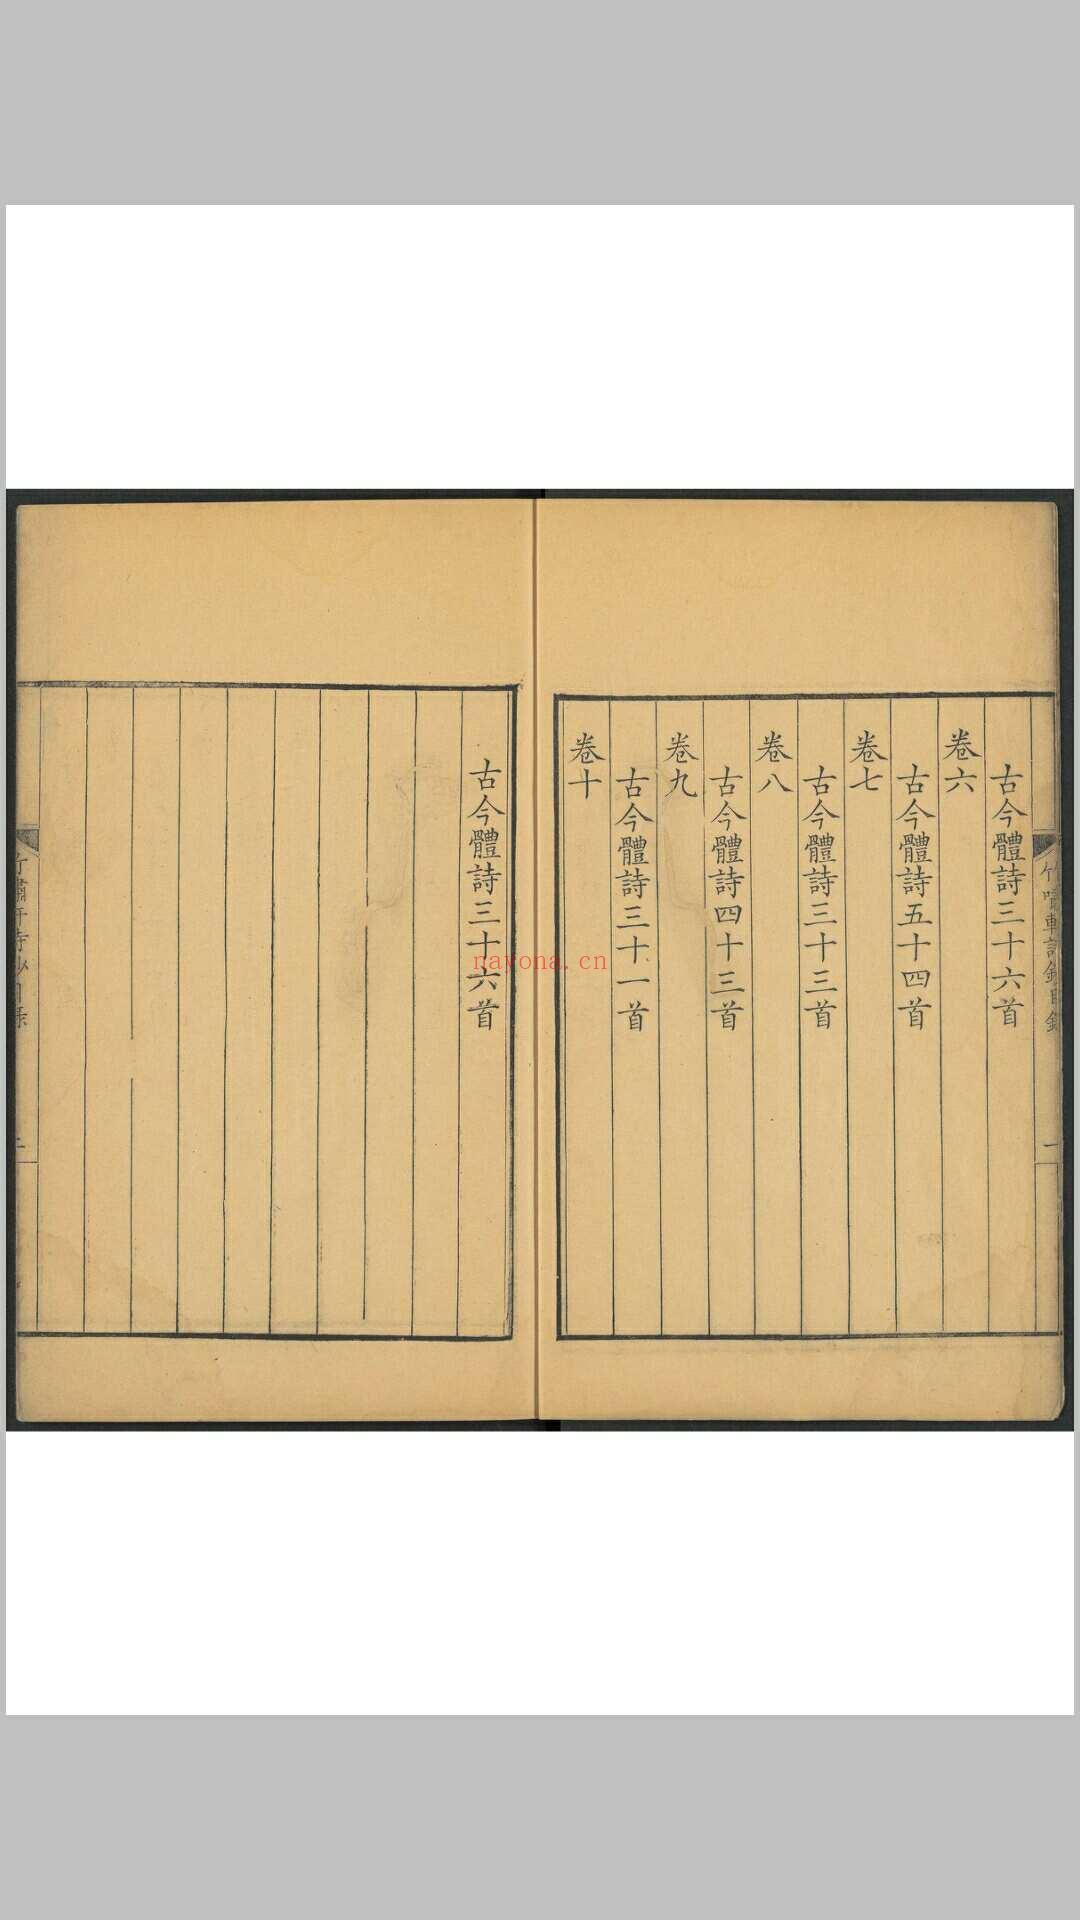 古今體詩三十六首
卷六
古今體詩五十四首
卷七
古今體詩三十三首
卷八
古今體詩四十三首
卷九
古今體詩三十一首
卷十
古今體詩三十六首
nayona.cn